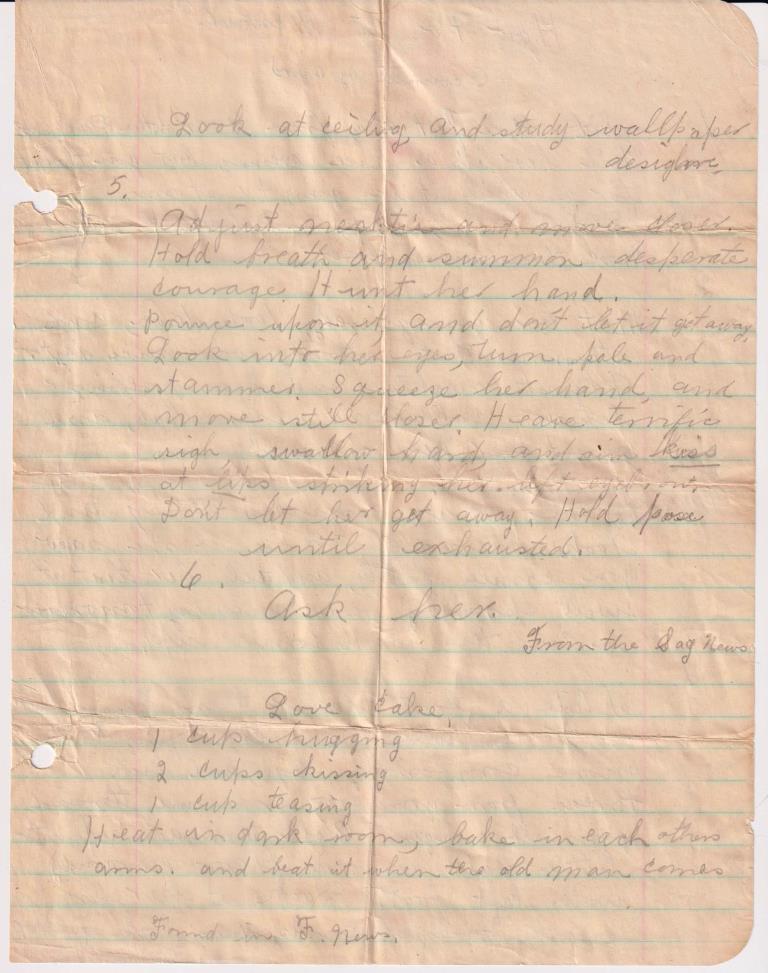 Look at ceiling and study wallpaper
design
5.
Adjust necktie and move closer.
Hold breath and summon desperate
courage. Hunt her hand.
Pounce upon it and don't let it get away.
Look into her eyes, turn pale and
stammer. Squeeze her hand, and
move still closer. Heave terrific
sigh, swallow hard, and aim kiss
at lips striking her left eyebrow
Don't let her get away. Hold pose
until exhausted.
6.
Ask her.
From the Sag News
Love Cake.
1 cup hugging
2 cups kissing
1 cup teasing
Heat in dark room, bake in each others
arms. and beat it when the old man comes
Found in F. News.